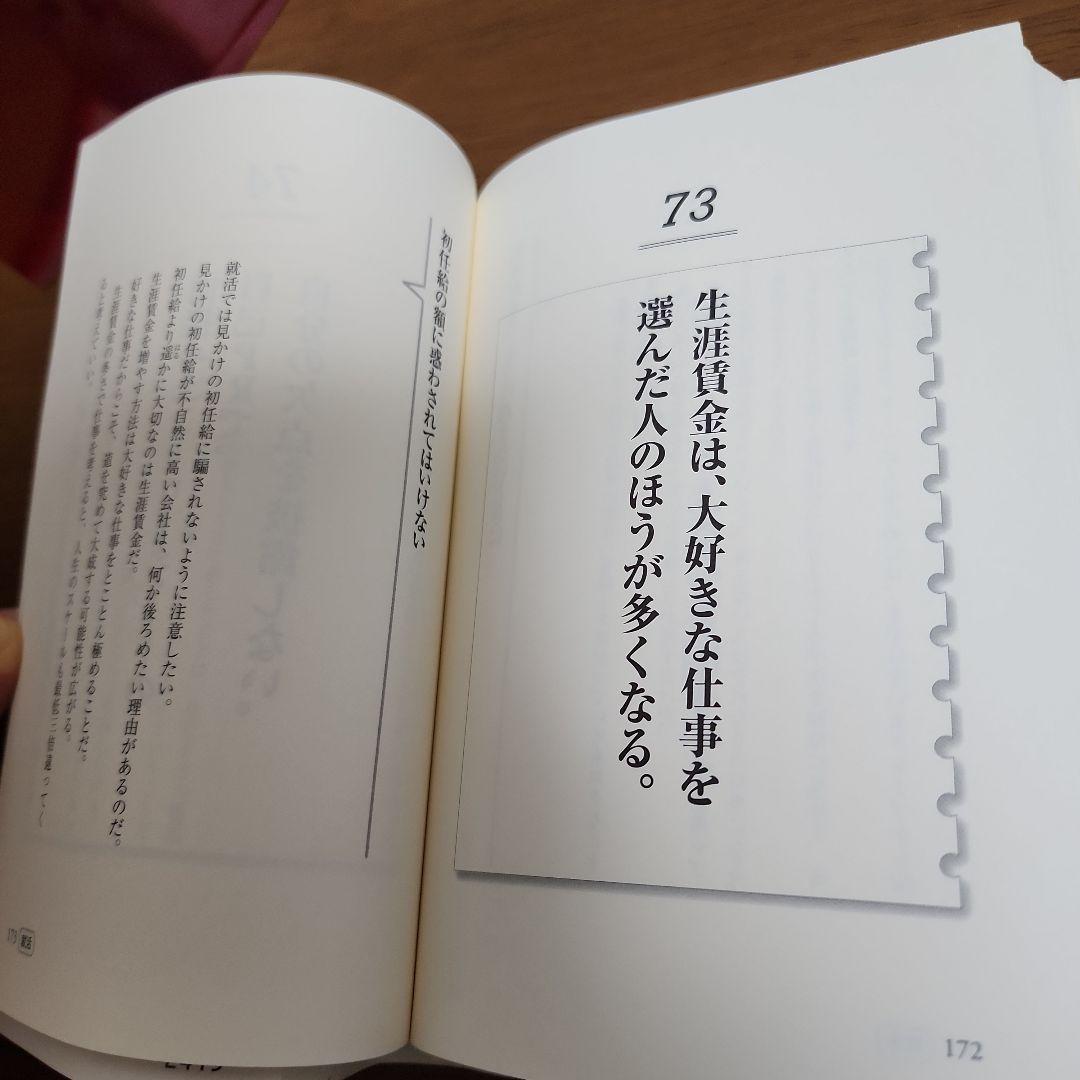 73
生涯賃金は、大好きな仕事を
選んだ人のほうが多くなる。
172
初任給の額に惑わされてはいけない
就活では見かけの初任給に騙されないように注意したい。
見かけの初任給が不自然に高い会社は、何か後ろめたい理由があるのだ。
初任給より遥かに大切なのは生涯賃金だ。
はる
生涯賃金を増やす方法は大好きな仕事をとことん極めることだ。
好きな仕事だからこそ、道を究めて大成する可能性が広がる。
生涯賃金の多さで仕事を考えると、人生のスケールも最低三倍違ってく
ると考えていい。
173 就活